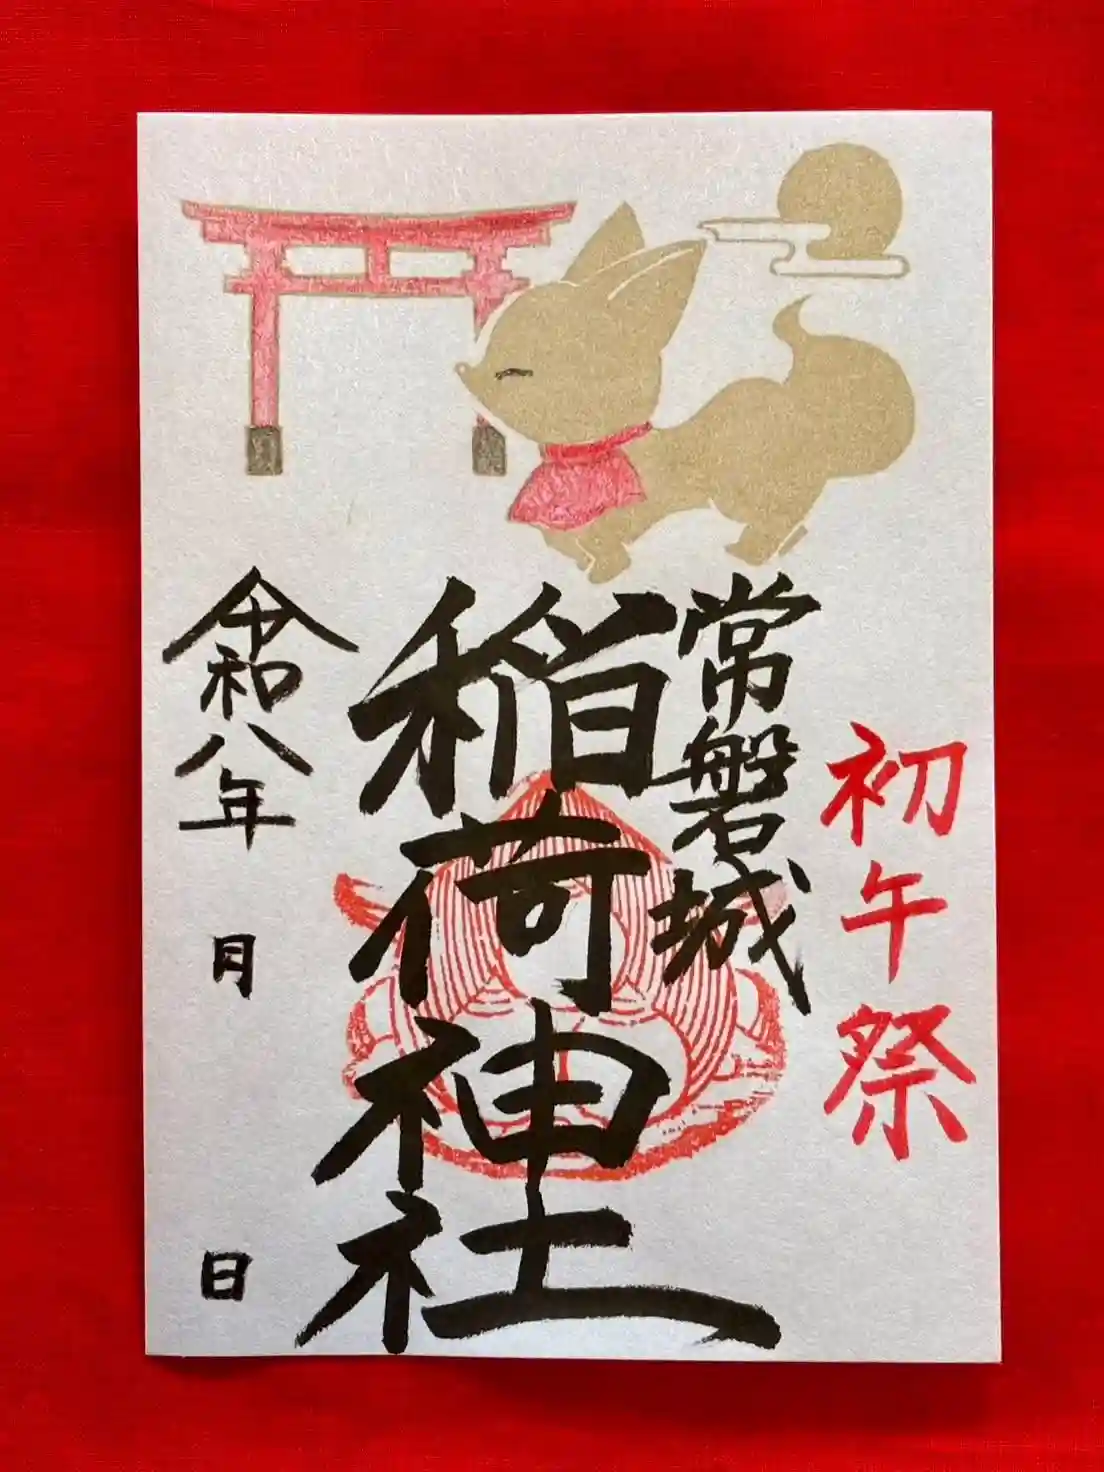 初午祭
常磐城
稲荷神社
令和八年 月 日